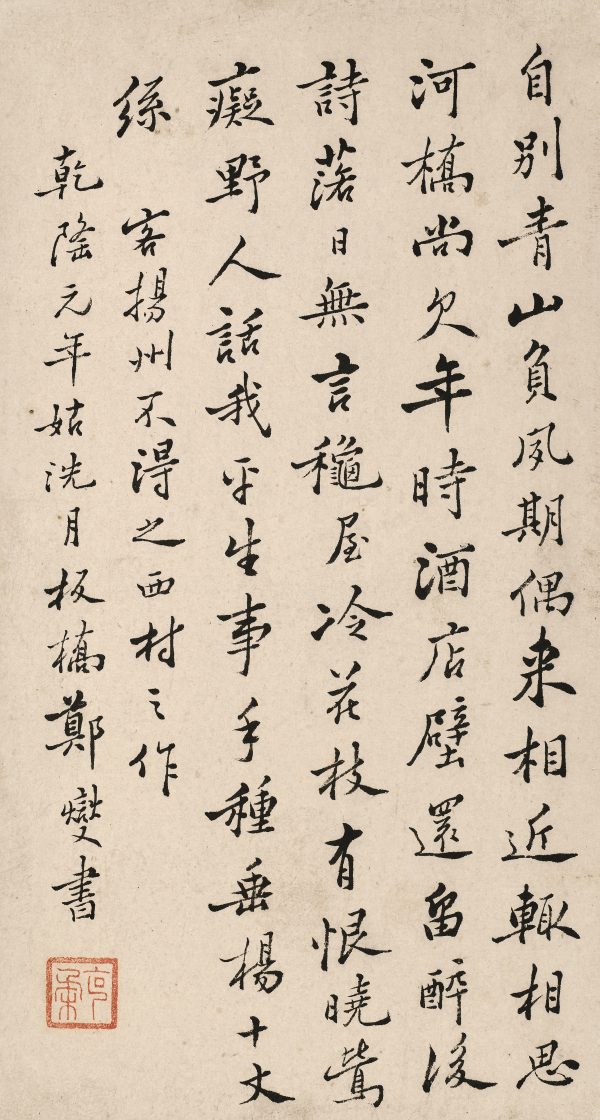 自別青山負夙期偶来相近輙相思
河橋尚欠年時酒店壁還留醉後
詩落日無言龝屋冷花枝有恨曉鶯
癡野人話我平生事手種垂楊十丈
絲 客揚州不得之西村之作
乾隆元年姑洗月板橋鄭燮書
克柔